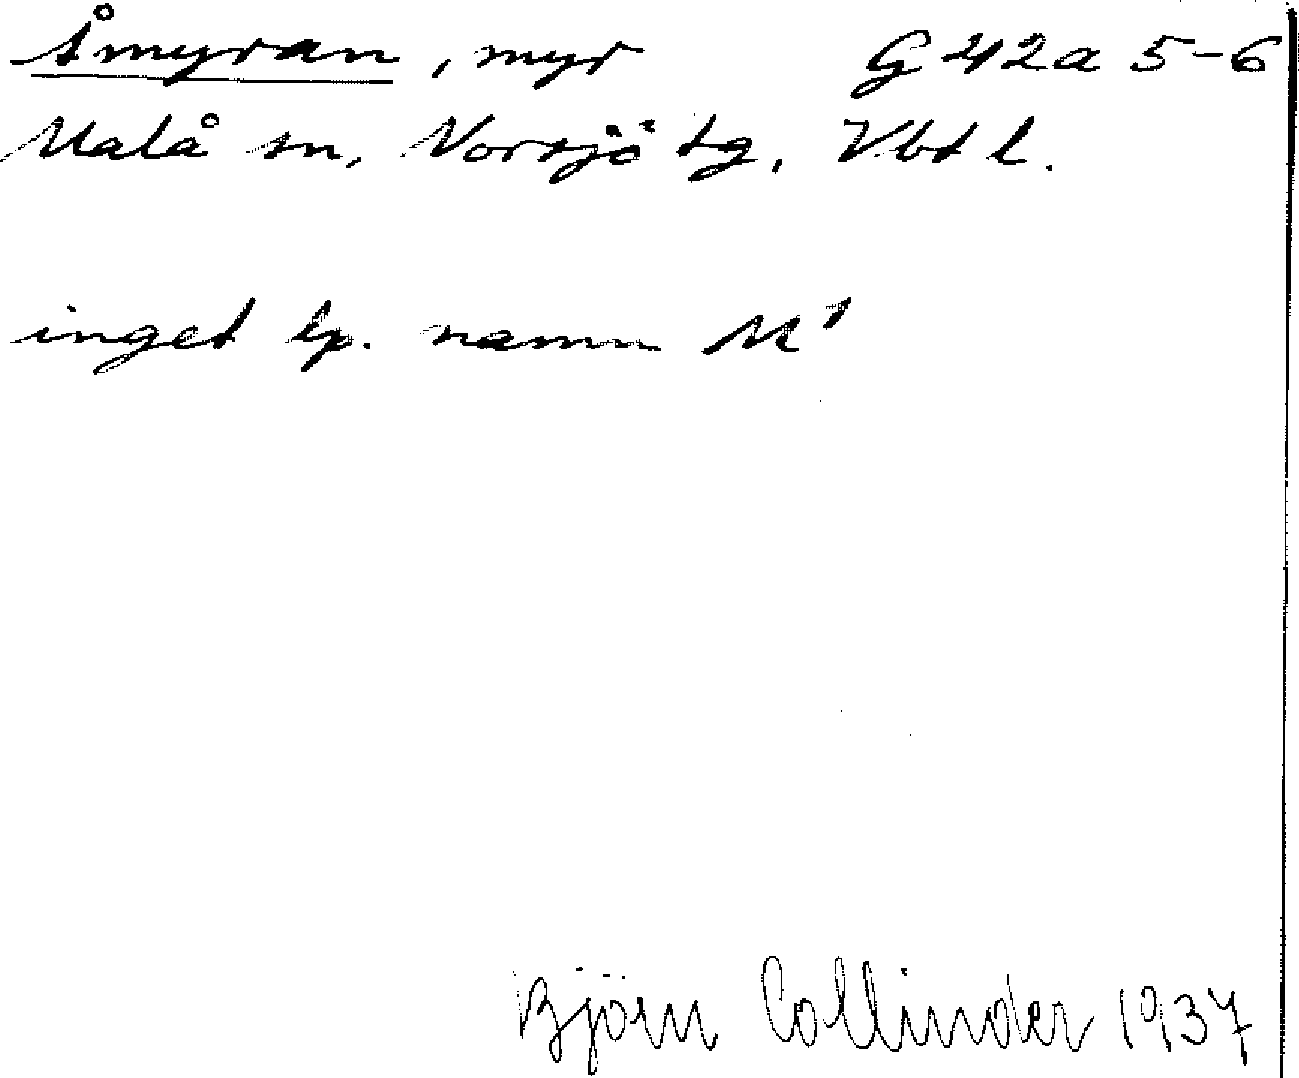 Åmyran, myr G 42a 5-6
Malå sn, Norsjö tg, Vbt l.
inget lp. namn M¹
Björn Collinder 1937